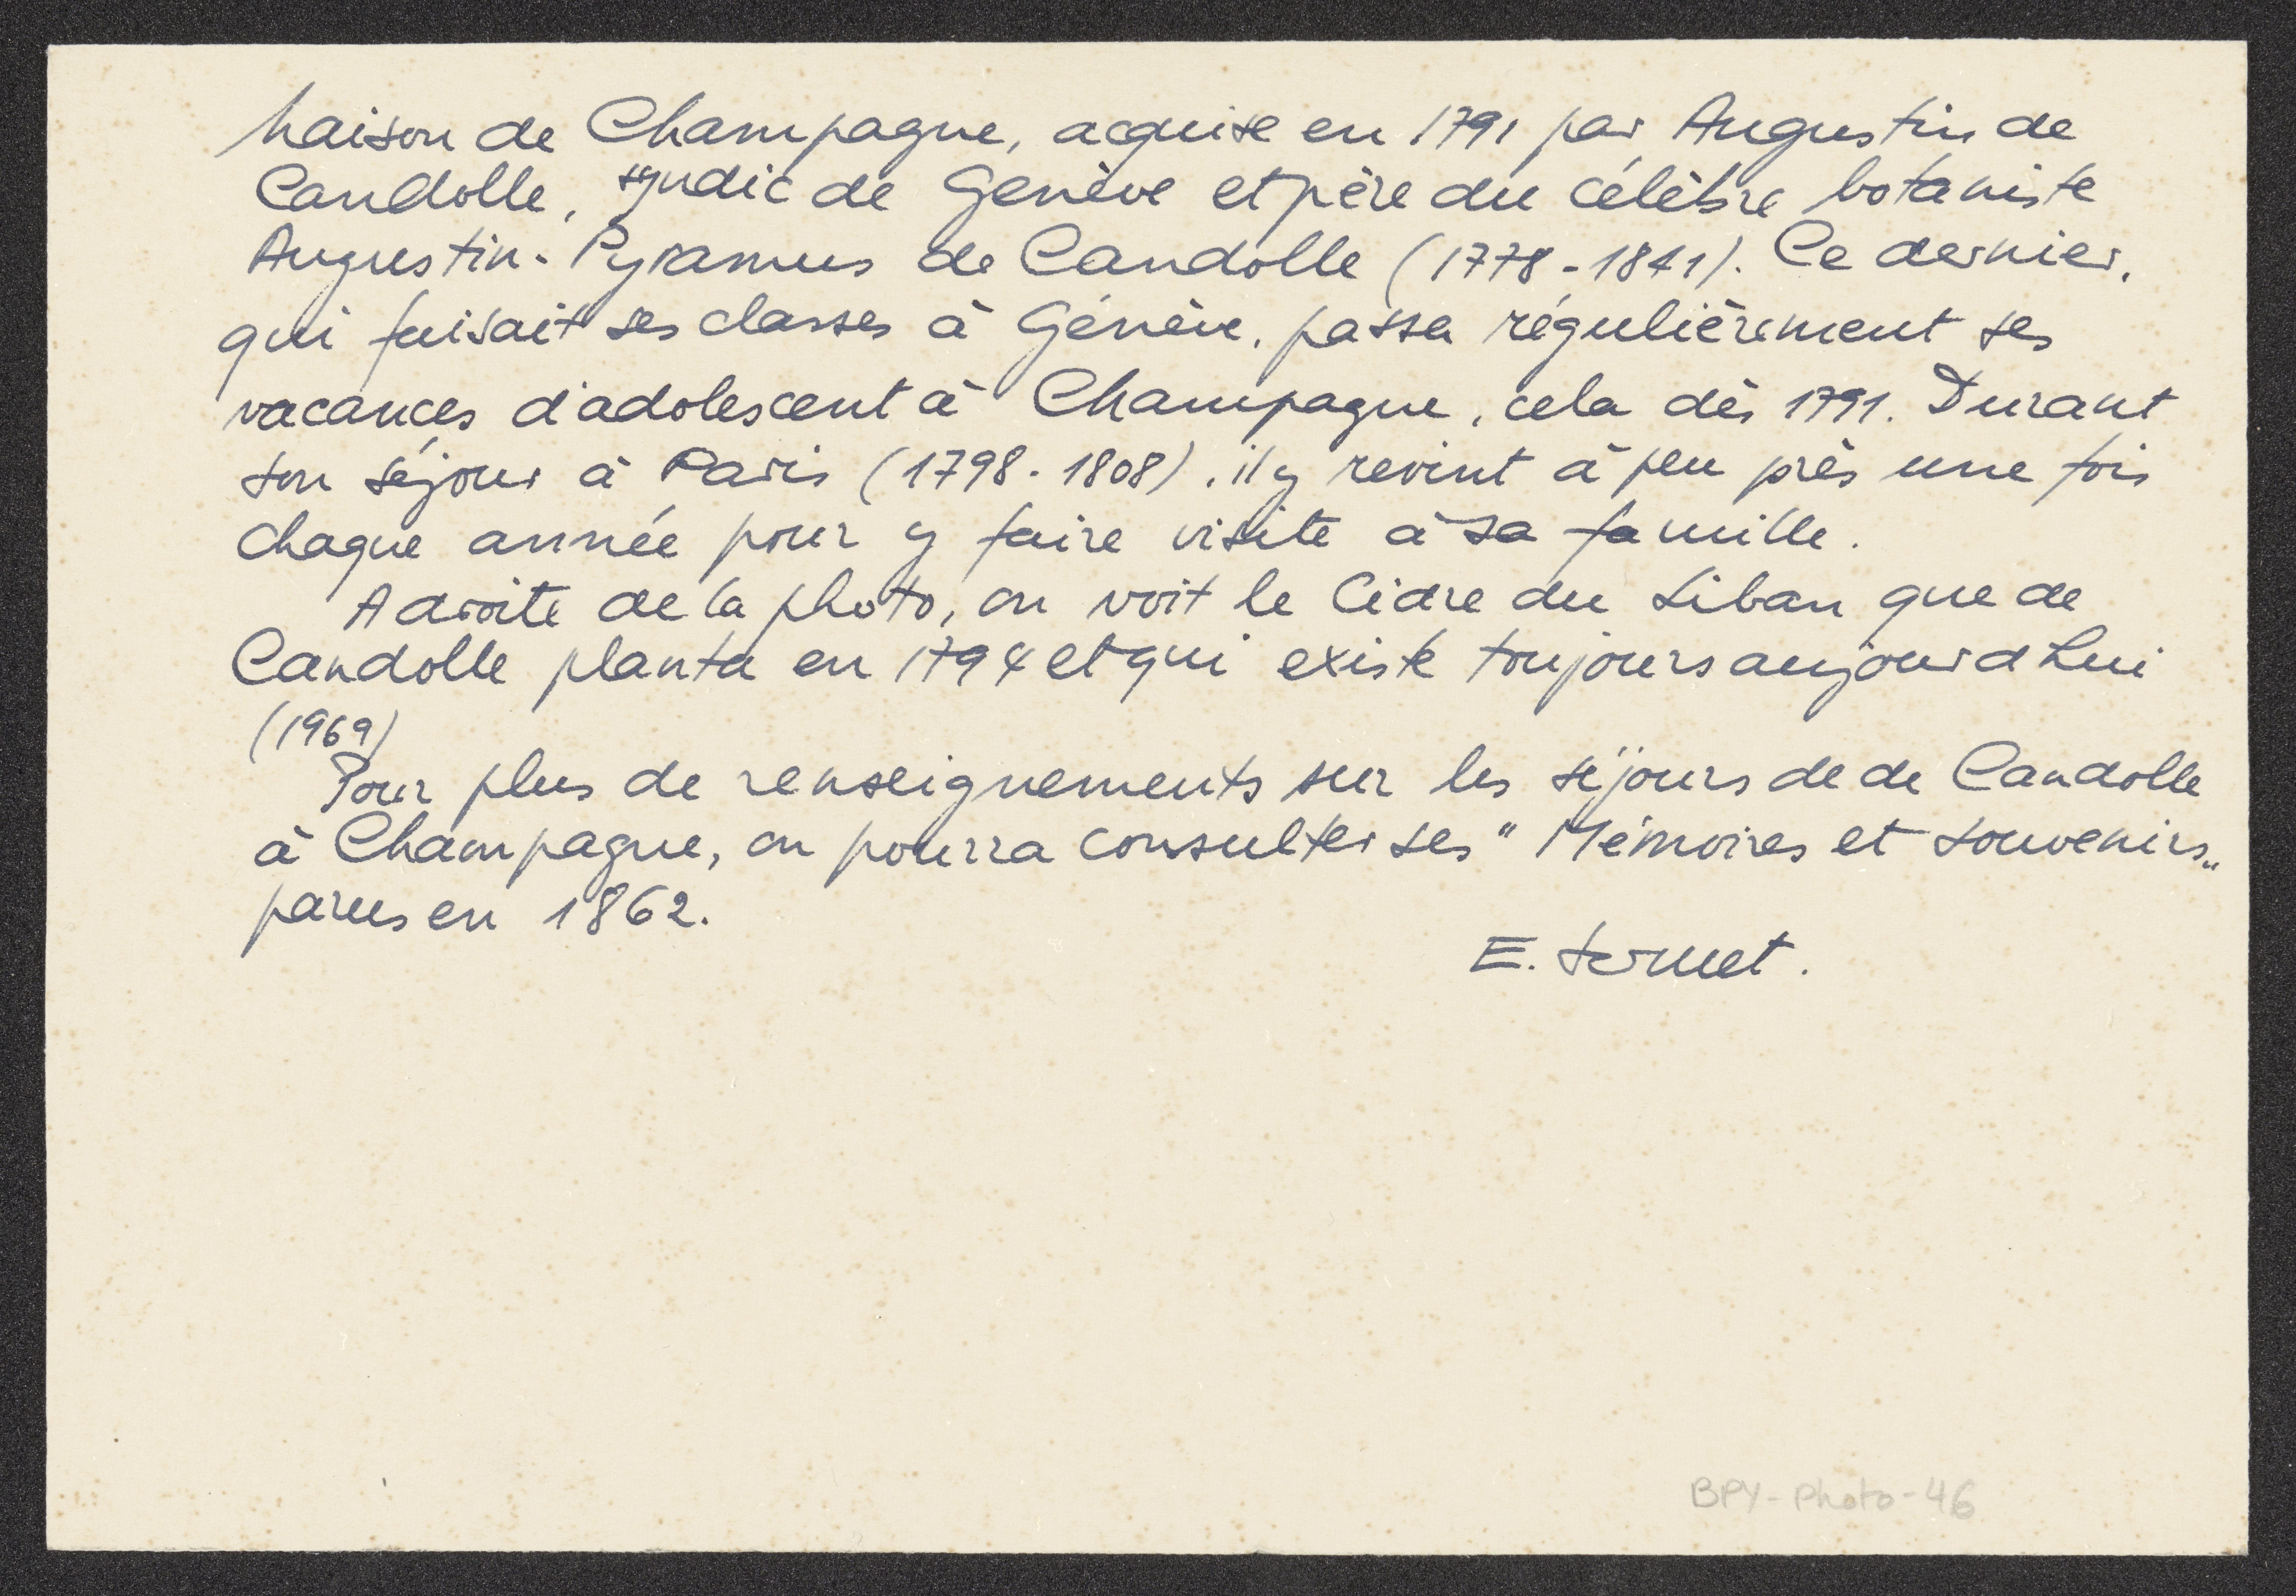 Maison de Champagne, acquise en 1791 par Augustin de
Candolle, syndic de Genève et père du célèbre botaniste
Augustin-Pyramus de Candolle (1778-1841). Ce dernier,
qui faisait ses classes à Génève, passa régulièrement ses
vacances d'adolescent à Champagne, cela dès 1791. Durant
son séjour à Paris (1798-1808), il y revint à peu près une fois
chaque année pour y faire visite à sa famille.
A droite de la photo, on voit le Cèdre du Liban que de
Candolle planta en 1794 et qui existe toujours aujourd'hui
(1969)
Pour plus de renseignements sur les séjours de de Candolle
à Champagne, on pourra consulter ses "Mémoires et souvenirs"
parus en 1862.
E. Sermet.
BPY-Photo-46